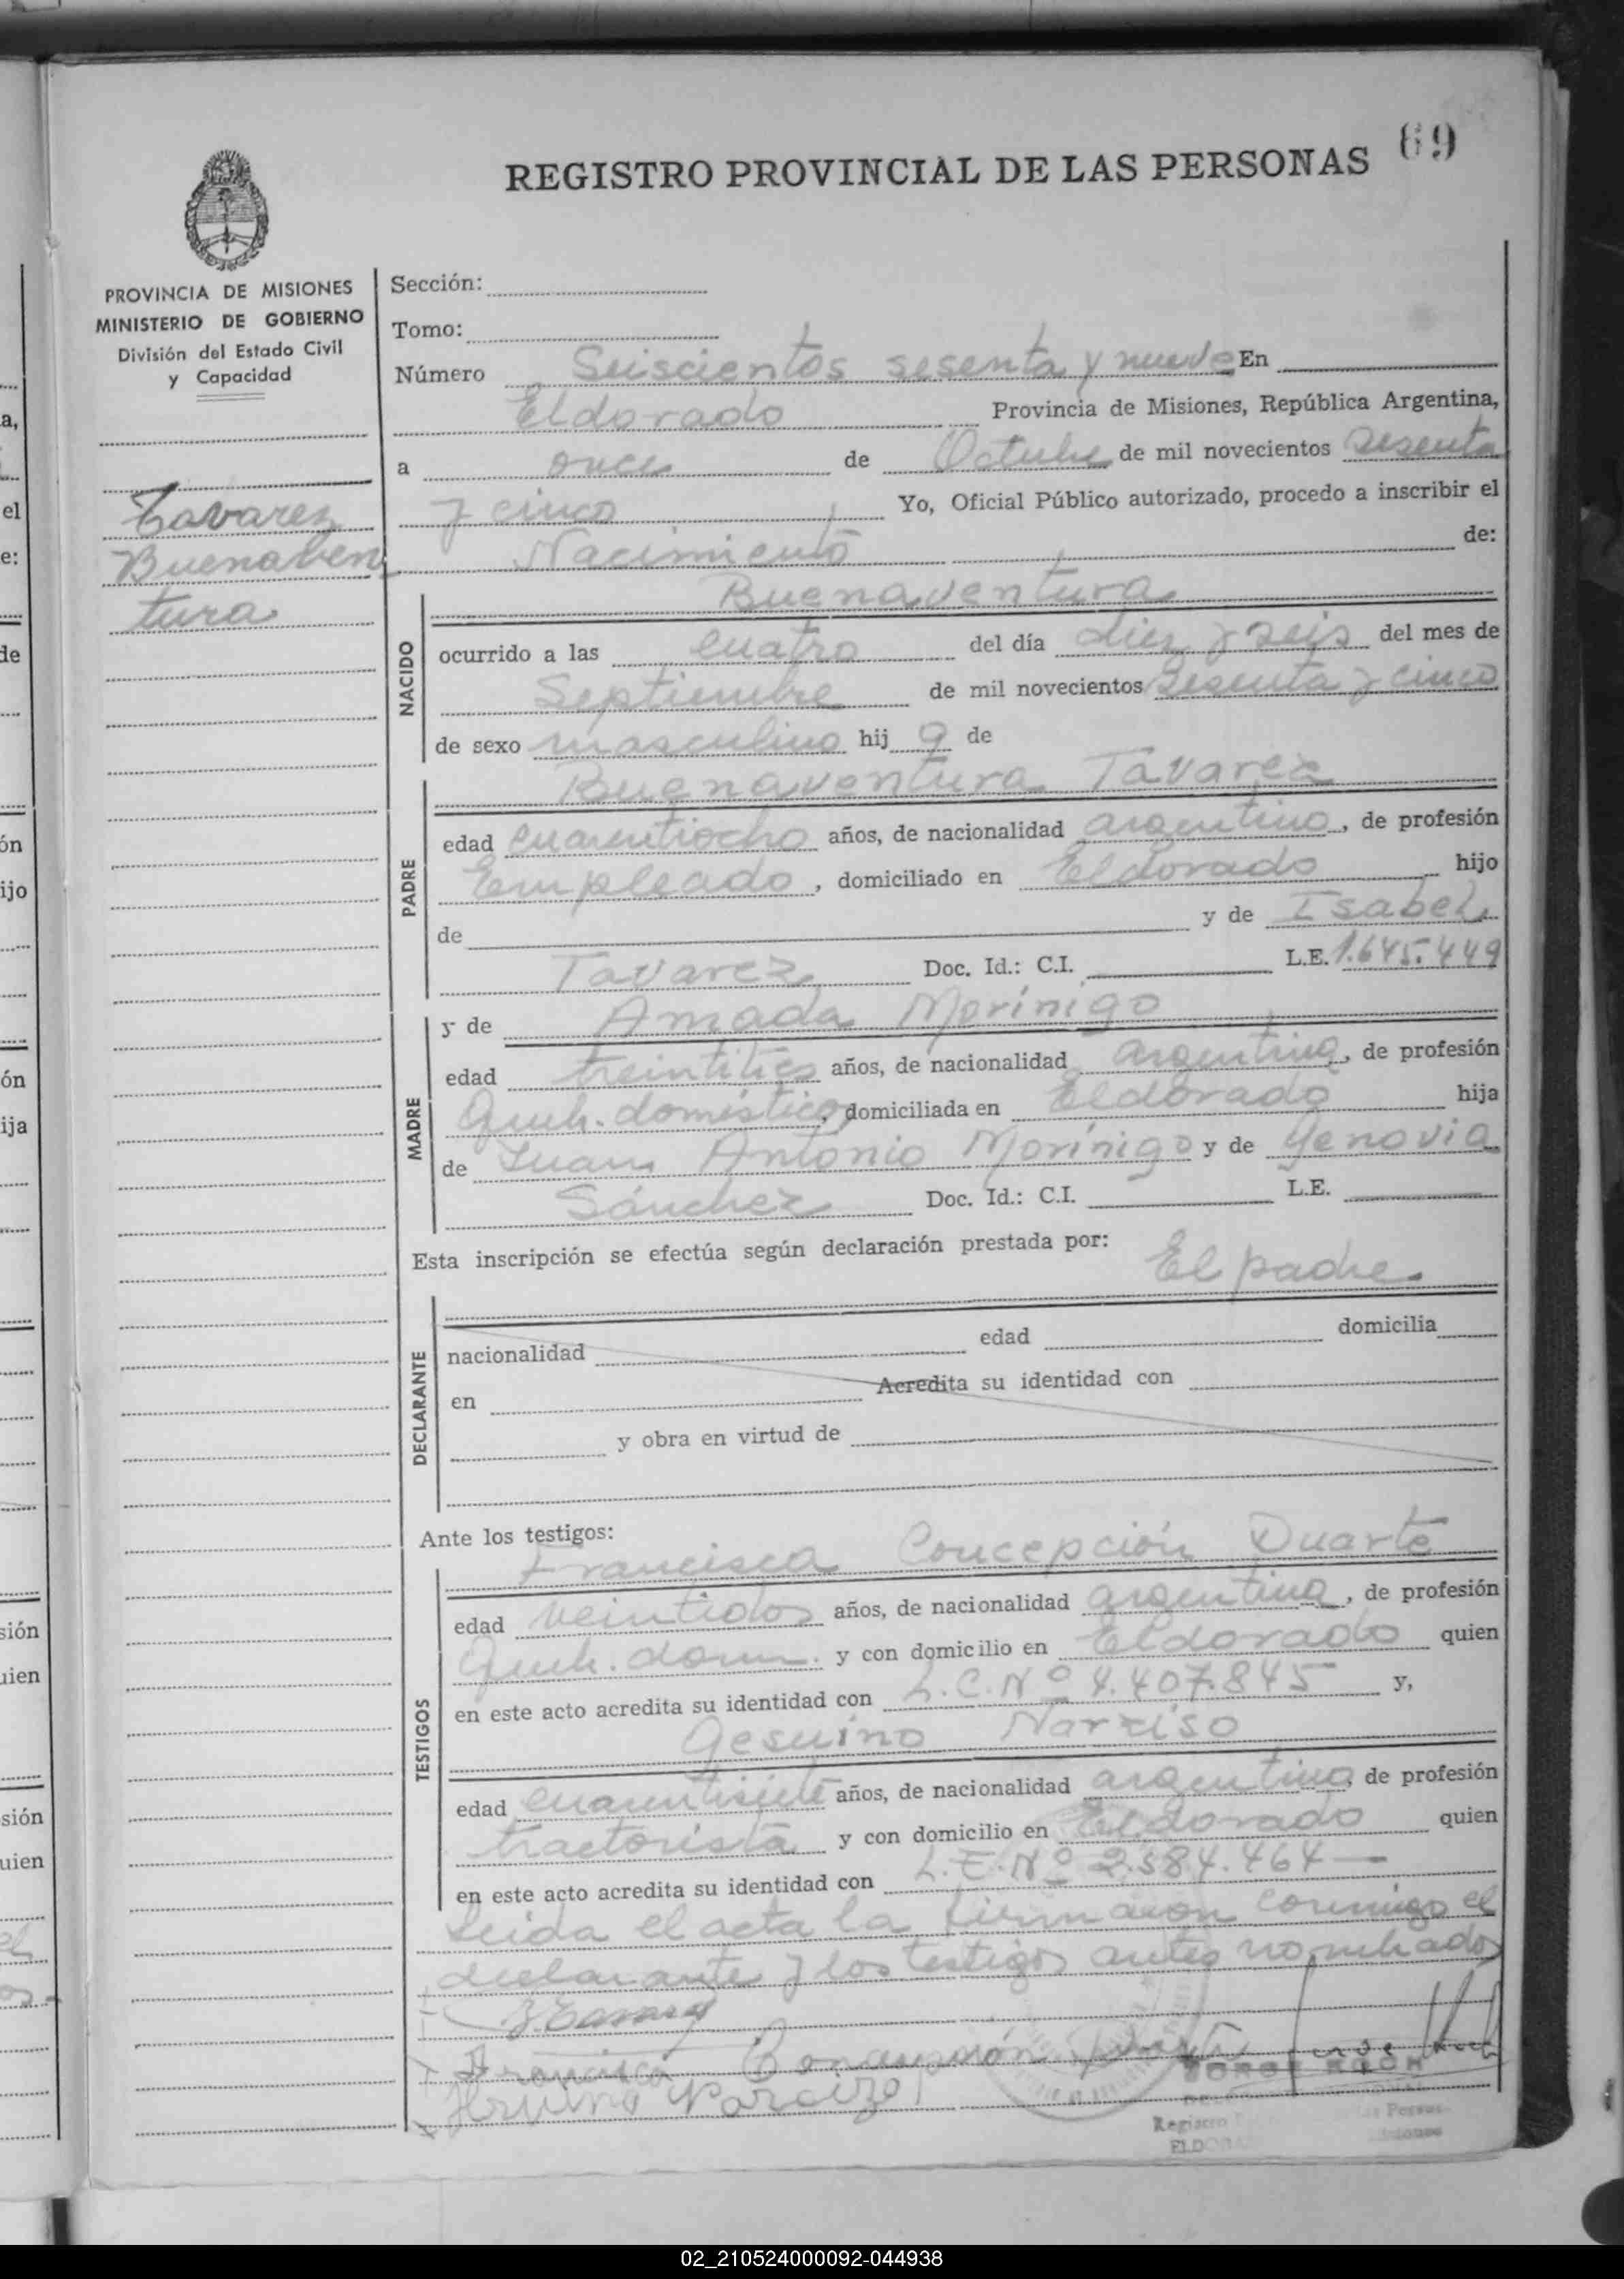 69
REGISTRO PROVINCIAL DE LAS PERSONAS
PROVINCIA DE MISIONES
MINISTERIO DE GOBIERNO
División del Estado Civil
y Capacidad
Tavarez
Buenaben
tura
Sección:
Tomo:
Número Seiscientos sesenta y nueve En
Eldorado Provincia de Misiones, República Argentina,
a once de Octubre de mil novecientos sesenta
y cinco Yo, Oficial Público autorizado, procedo a inscribir el
Nacimiento de:
NACIDO
Buenaventura
ocurrido a las cuatro del día diez y seis del mes de
Septiembre de mil novecientos sesenta y cinco
de sexo masculino hij o de
PADRE
Buenaventura Tavarez
edad cuarentiocho años, de nacionalidad argentino, de profesión
Empleado, domiciliado en Eldorado hijo
de y de Isabel
Tavarez Doc. Id.: C.I. L.E. 1.645.449
MADRE
y de Amada Morínigo
edad treintitres años, de nacionalidad argentina, de profesión
Queh. domístico, domiciliada en Eldorado hija
de Juan Antonio Morínigo y de Genovia
Sánchez Doc. Id.: C.I. L.E.
Esta inscripción se efectúa según declaración prestada por: El padre
DECLARANTE
nacionalidad edad domicilia
en Acredita su identidad con
y obra en virtud de
Ante los testigos:
TESTIGOS
Francisca Concepción Duarte
edad veintidos años, de nacionalidad argentina, de profesión
Queh. dom. y con domicilio en Eldorado quien
en este acto acredita su identidad con L.C. Nº 4.407.845 y,
Gesuino Narciso
edad cuarentisiete años, de nacionalidad argentino, de profesión
tractorista y con domicilio en Eldorado quien
en este acto acredita su identidad con L.E. Nº 2.584.464
Leida el acta la firmaron conmigo el
declarante y los testigos antes nombrados
Francisca Concepción Duarte
Registro
ELDO
02_210524000092-044938